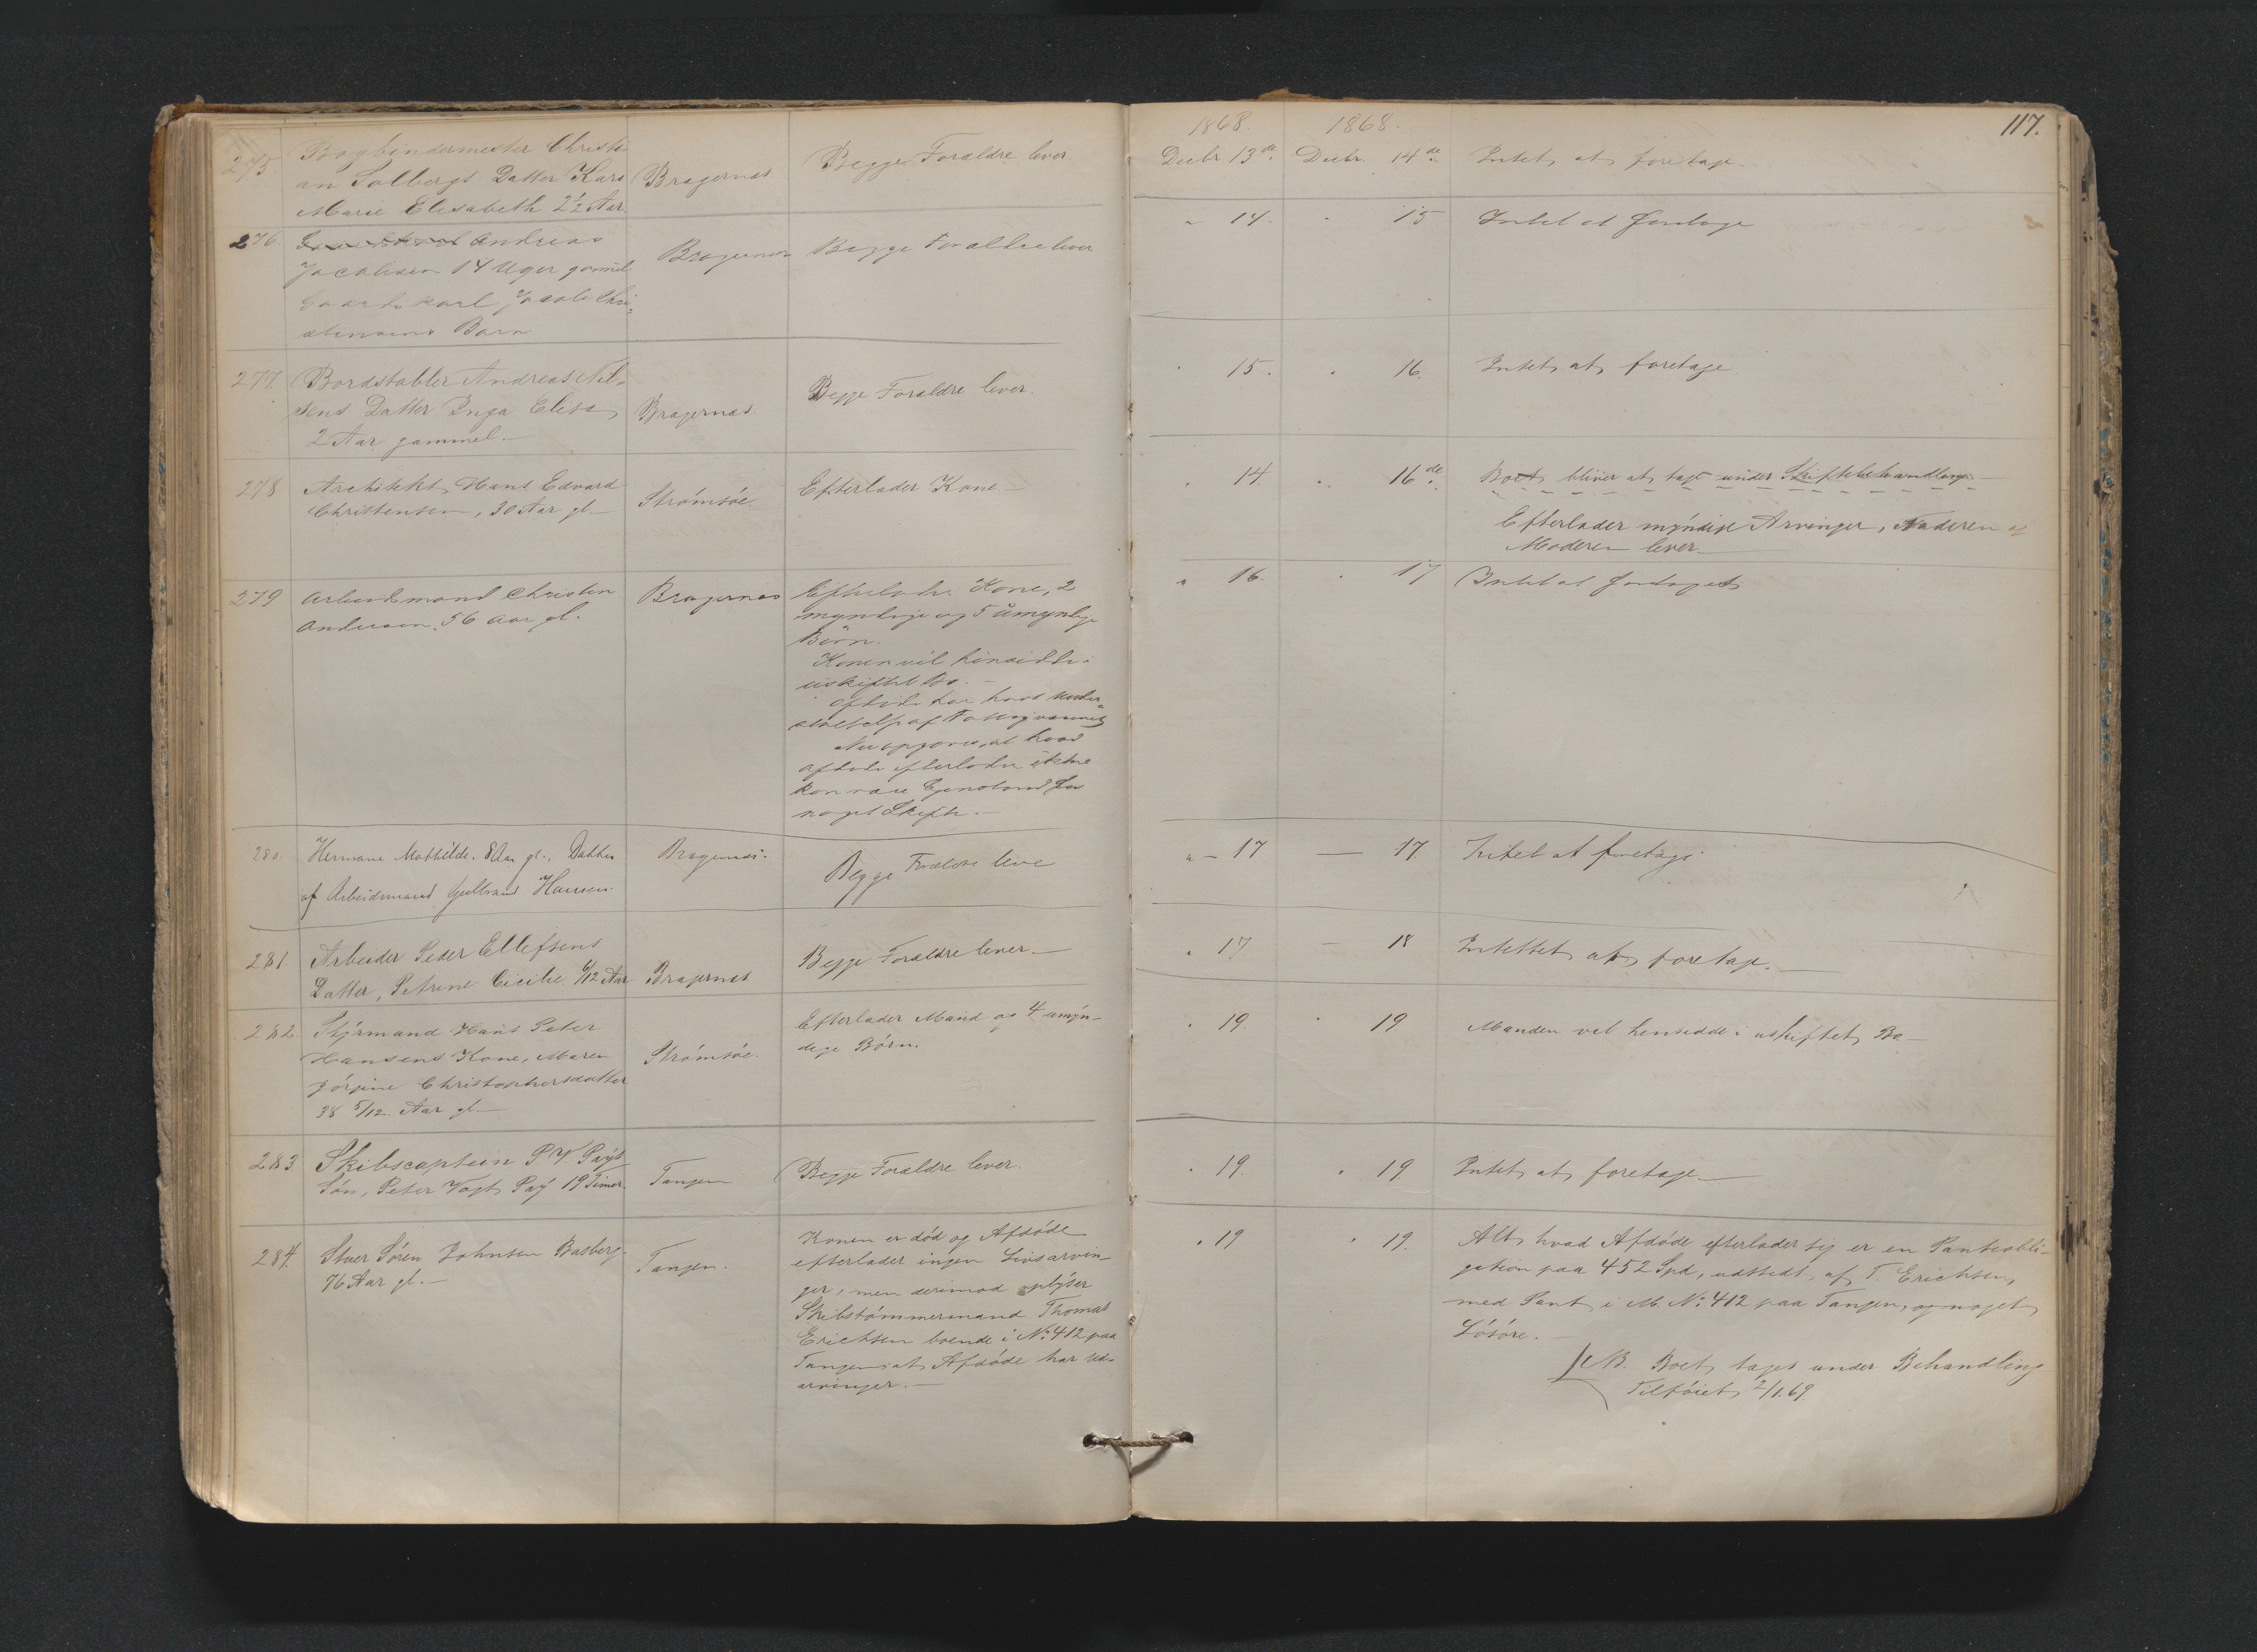 117.
1868. 1868.
275. Bogbindermester Christi
an Solbergs Datter Kara
Marie Elisabeth 2 1/2 Aar.
Bragernæs
Begge Forældre lever.
Decbr 13de. Decbr. 14de. Intet at foretage.
276. Andreas
Jacobsen 14 Uger gammel
Gaardskarl Jacob Chri-
stensens Barn
Bragernæs
Begge Forældre lever
" 14. " 15 Intet at foretage
277. Bordstabler Andreas Nil-
sens Datter Inga Elisa,
2 Aar gammel.-
Bragernæs.
Begge Forældre lever.
" 15. " 16. Intet at foretage.
278 Architekt Hans Edvard
Christensen, 30 Aar gl-
Strömsöe.
Efterlader Kone.-
" 14. " 16de. Boet bliver at tage under Skiftebehandling.-
Efterlader myndige Arvinger, Faderen og
Moderen lever.-
279 Arbeidsmand Christen
Andersen. 56 Aar gl.
Bragernæs
Efterlader Kone, 2
myndige og 5 umyndige
Börn.
Konen vil hensidde i
uskiftet Bo.-
Afdöde har havt Under-
stöttelse af Fattigvæsenet
Nu opgives, at hvad
Afdöde efterlader ikke
kan være Gjenstand for
noget Skifte.-
" 16. " 17 Intet at foretaget
280. Hermane Mathilde. 8 Aar gl., Datter
af Arbeidsmand Gulbrand Hansen.
Bragernæs.
Begge Forældre leve
" - 17 — 17. Intet at foretage
281 Arbeider Peder Ellefsens
Datter, Petrine Cicilie 6/12 Aar
Bragernæs
Begge Forældre lever.-
" 17 - 18 Intettet at foretage.-
282. Styrmand Hans Peter
Hansens Kone, Maren
Jörgine Christophersdatter
38 5/12 Aar gl-
Strömsöe.
Efterlader Mand og 4 umyn-
dige Börn.
" 19. " 19 Manden vil hensidde i uskiftet Bo.-
283 Skibscaptein P V Pays
Sön, Peter Vogt Pay 19 Timer.
Tangen
Begge Forældre lever.
" 19. " 19. Intet at foretage.-
284. Stuer Sören Johnsen Basberg
76 Aar gl.-
Tangen.
Konen er död og Afdöde
efterlader ingen Livsarvin-
ger, men derimod oplyser
Skibstömmermand Thomas
Erichsen boende i No. 412 paa
Tangen at Afdöde har Ud-
arvinger.-
" 19 " 19. Alt hvad Afdöde efterlader sig er en Panteobli-
gation paa 452 Spd, udstedt af T. Erichsen,
med Pant i M. No. 412 paa Tangen, og noget
Lösöre.-
NB. Boet tages under Behandling
Tilföiet 2/1.69.